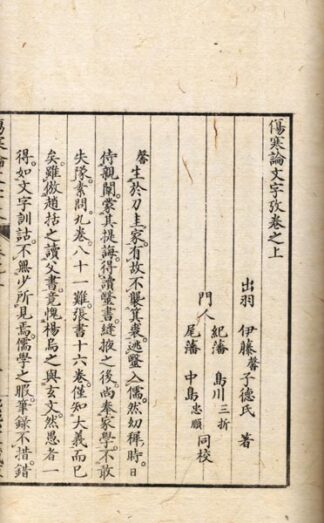 傷寒論文字攷卷之上
出羽 伊藤馨子德氏 著
門人 紀藩 島川三折
尾藩 中島忠順 同校
馨生於刀圭家。有故不襲其裘。逃醫入儒。然幼穉時。日
侍親闈。嘗其提誨。得讀醫書。縫掖之後。尚奉家學。不敢
失隊。素問九卷。八十一難。張書十六卷。僅知大義而已
矣。雖傚趙括之讀父書。竟愧楊烏之與玄文。然愚者一
得。如文字訓詁。不無少所見焉。儒學之暇。筆錄不措。錯